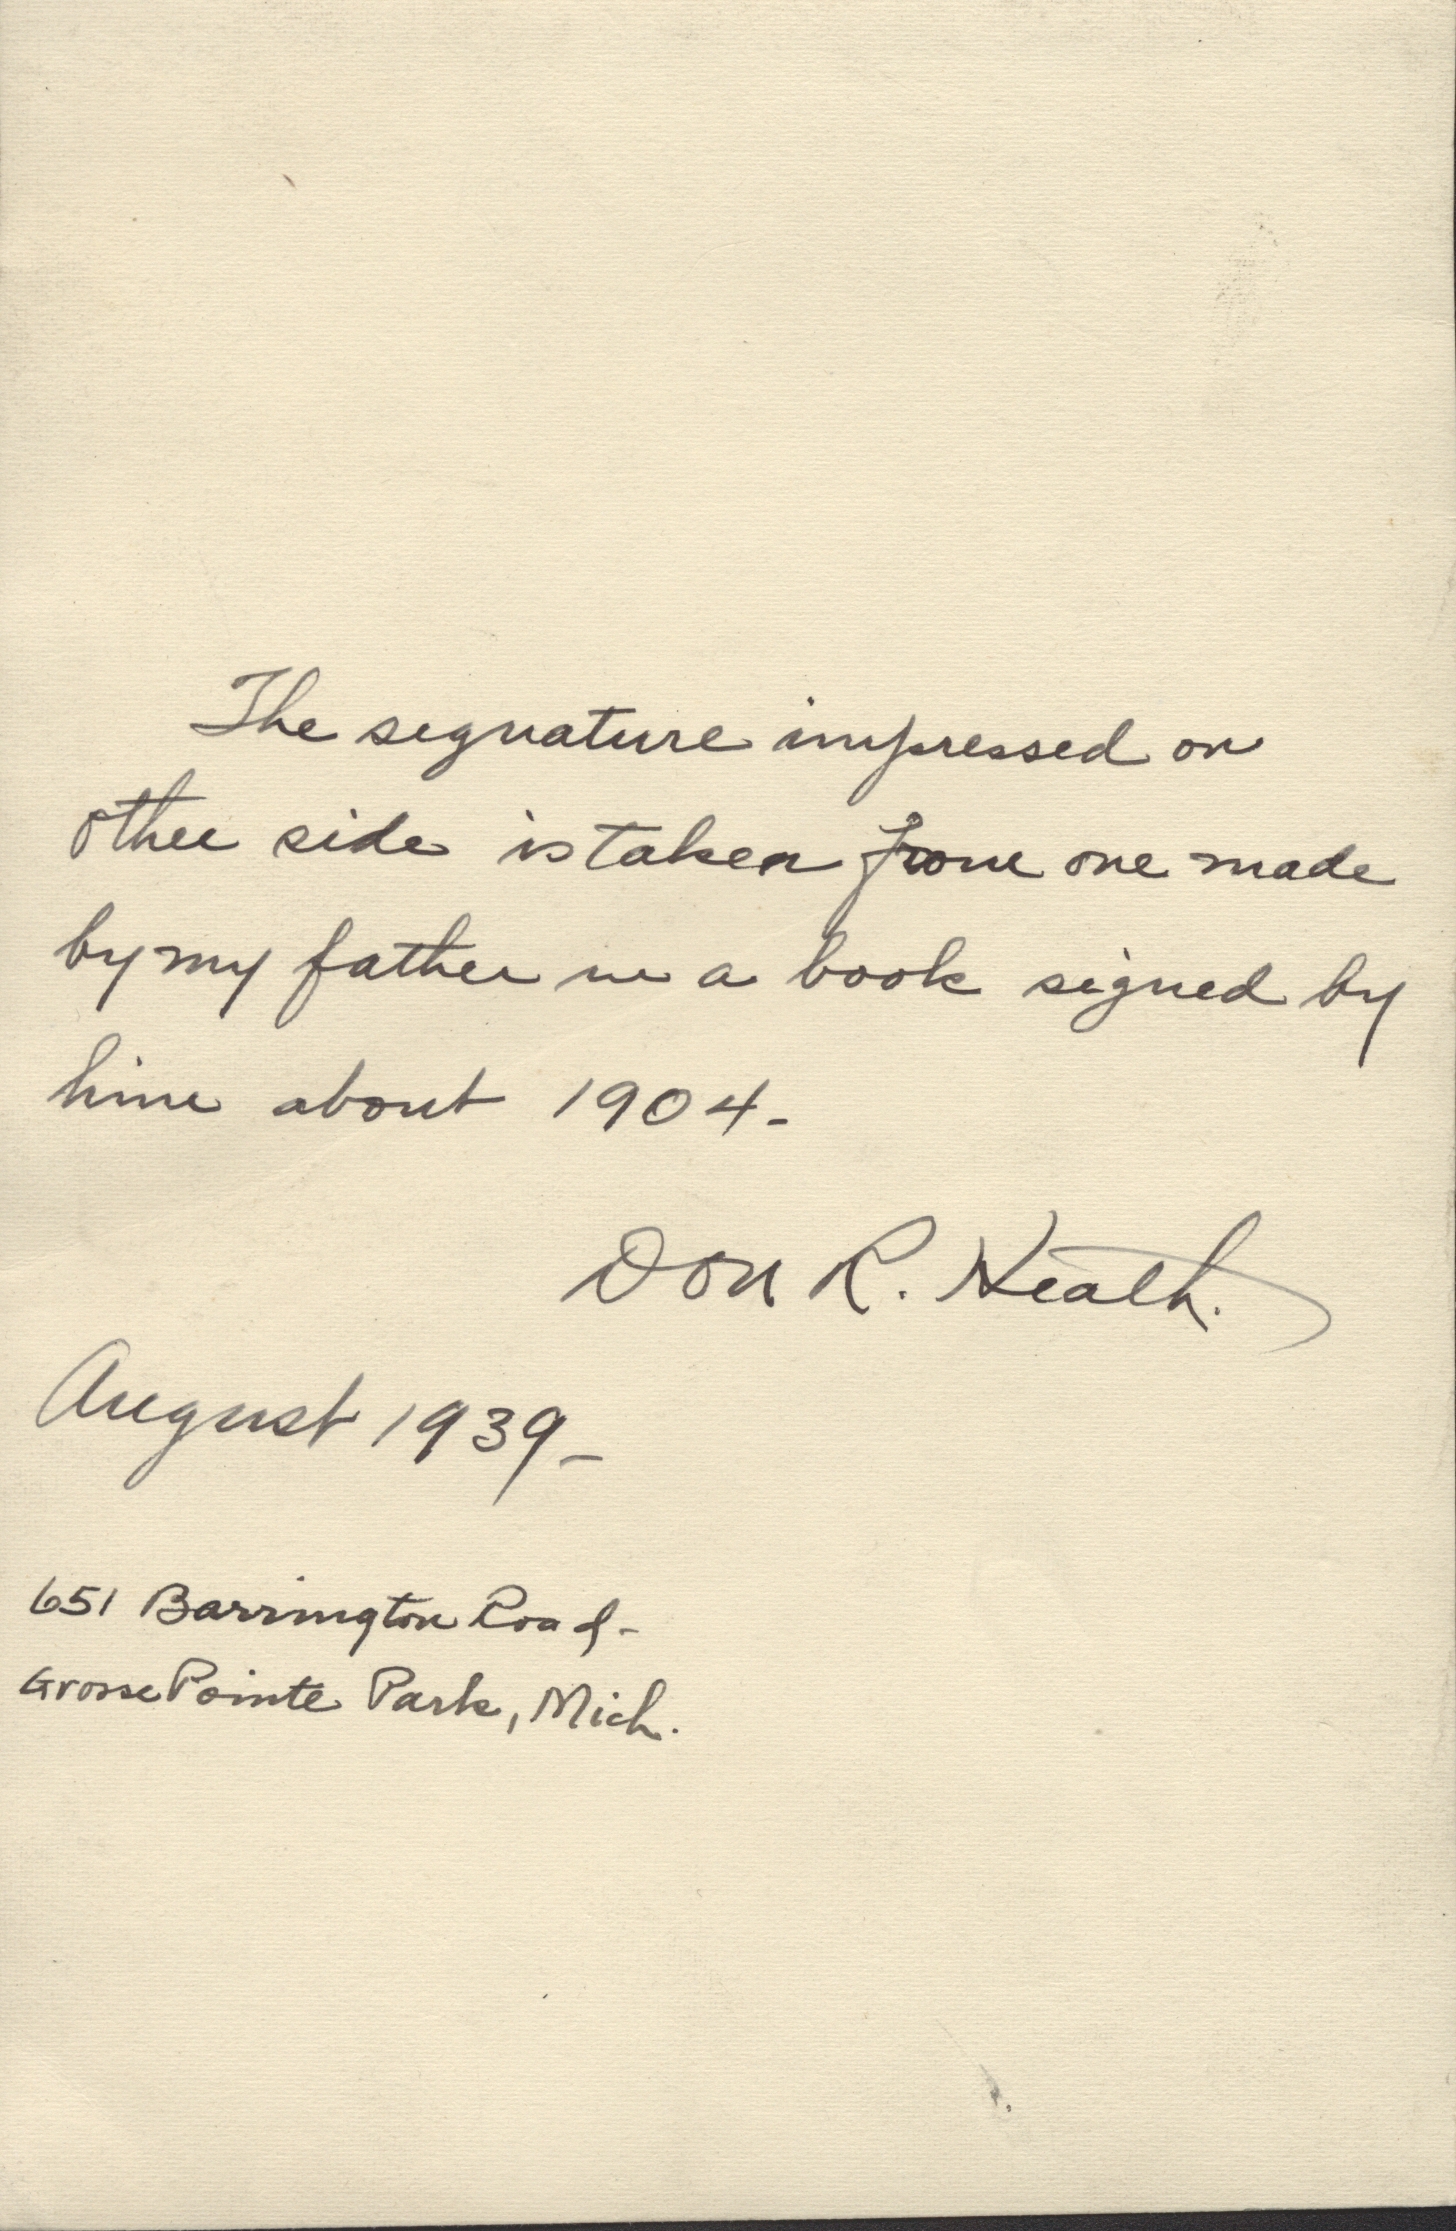 The signature impressed on
other side is taken from one made
by my father in a book signed by
him about 1904-
Don R. Heath.
August 1939-
651 Barrington Road-
Grosse Pointe Park, Mich.